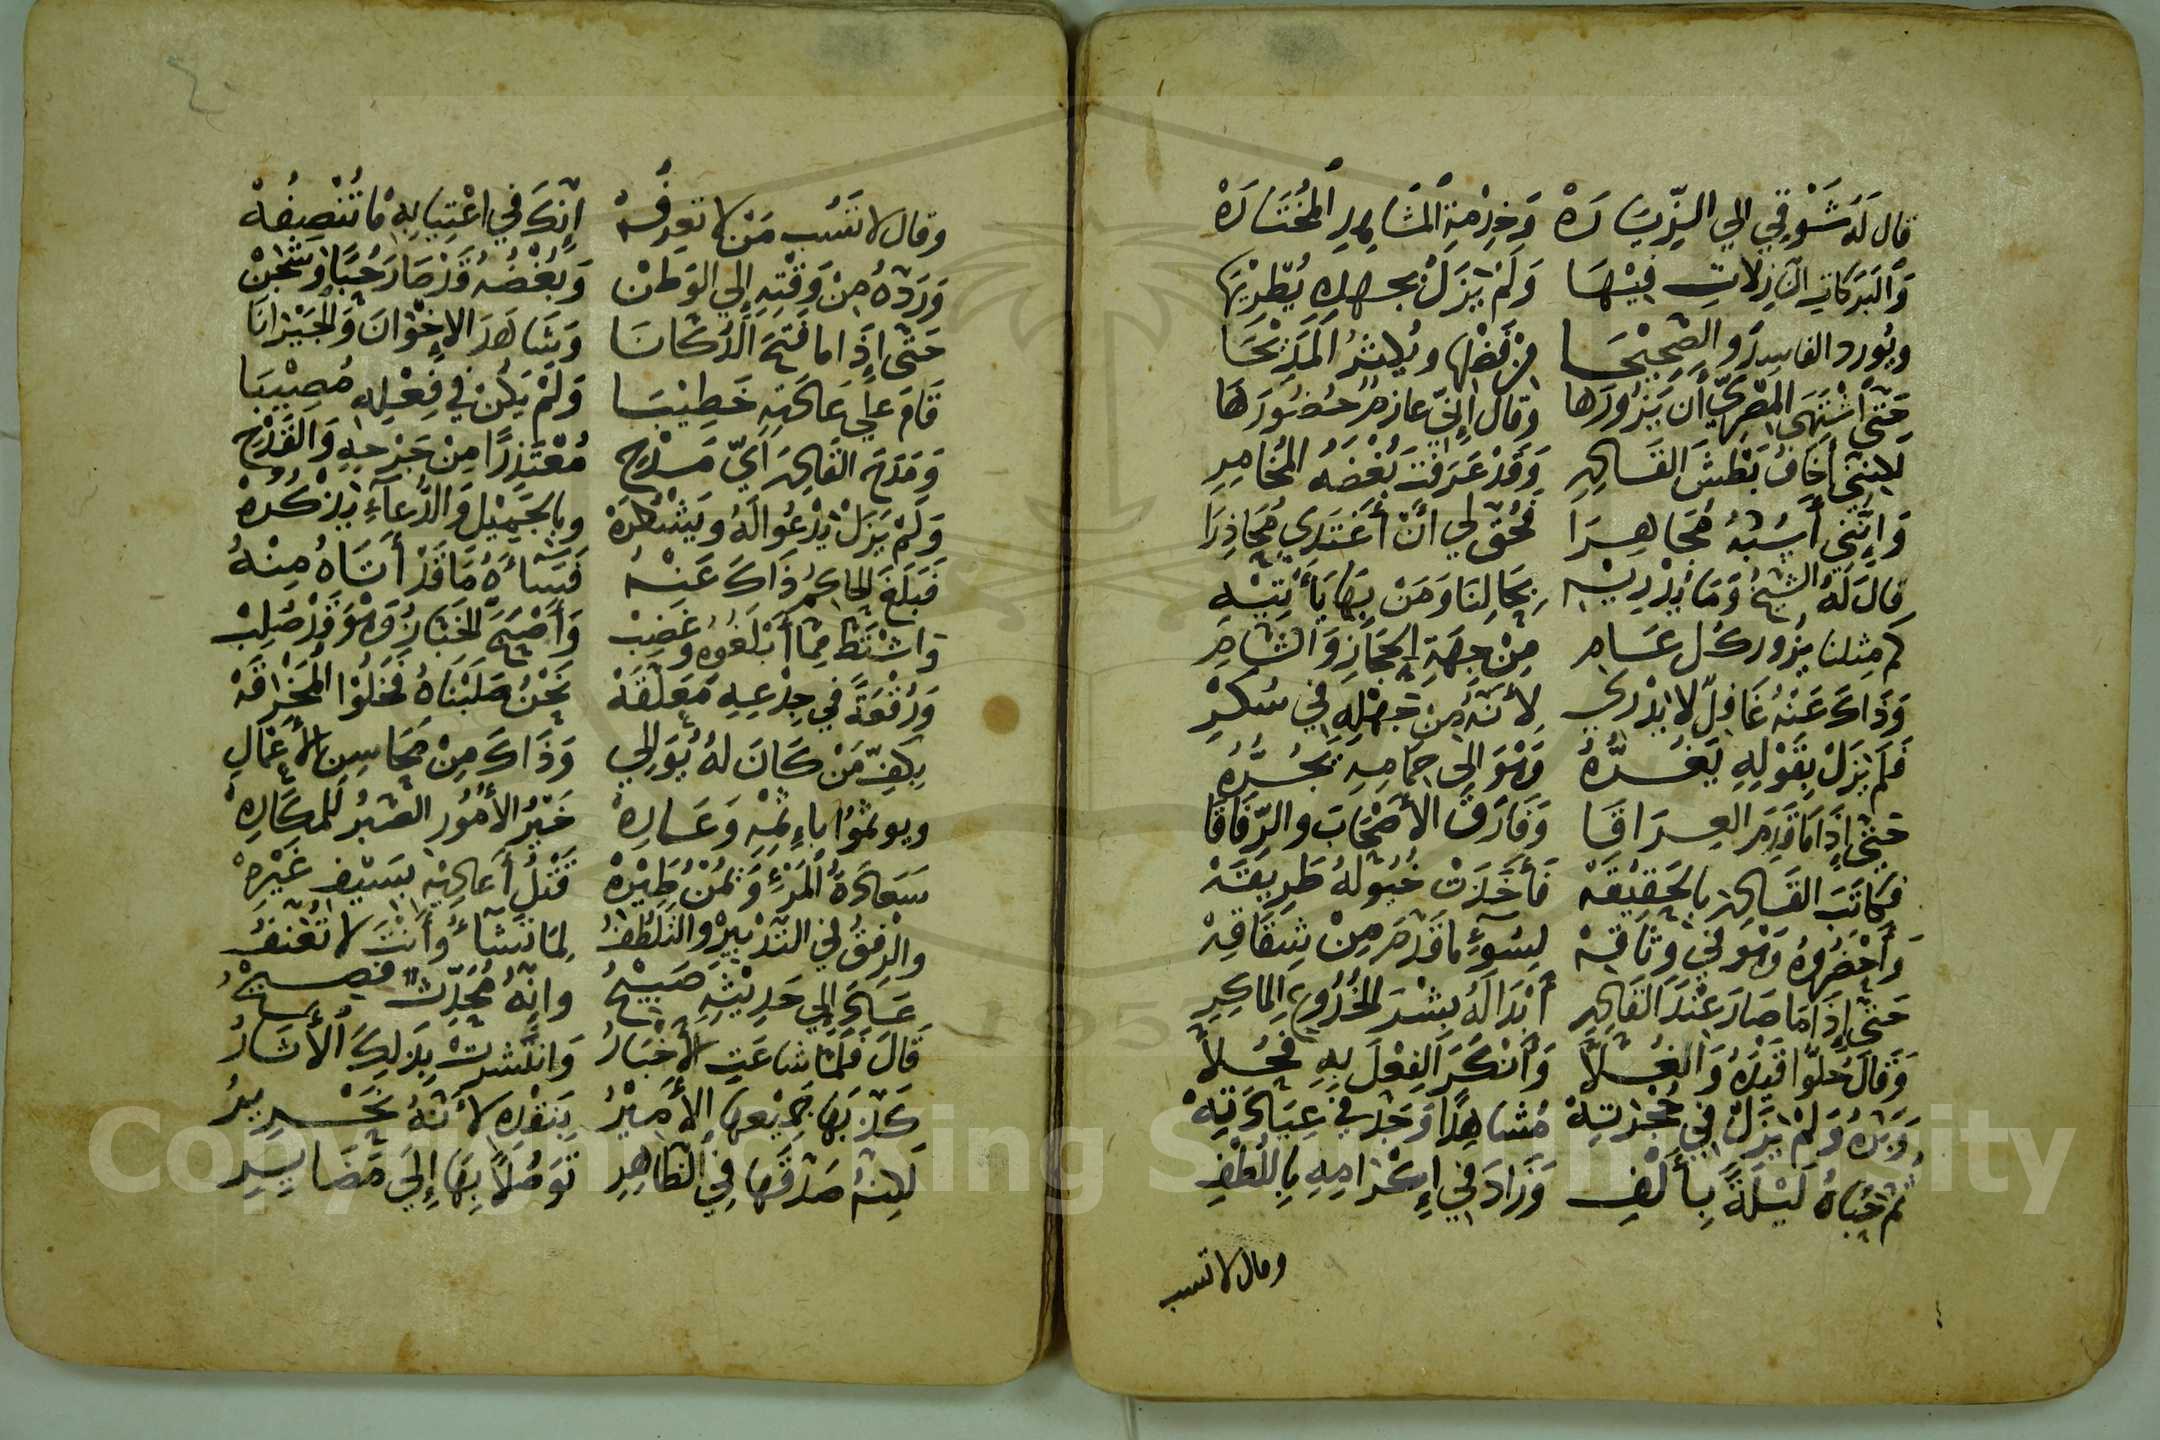 قال لَهُ شَوْقِي الي الزِّيَارَهْ وَخِدْمَةِ المَشَاهِدِ المُخْتَارَهْ
وَالبَرَكَاتِ النَّازِلاتِ فِيْهَا وَلَمْ يَزَلْ بجهلِهِ يُطْرِيْهَا
ويُورِد الفاسِدَ والصَّحِيْحَا مِنْ فَضْلِهَا ويُكثِرُ المَدِيْحَا
حَتَّى اشْتَهَى المِصْرِيُّ أَن يَزُورَهَا وقال إنّي عازمٌ حُضُورَهَا
لكِنَّنِي أَخَافُ بَطْشَ القَادِرِ وَقَدْ عَرَفْتَ بُغْضَهُ المُخَامِرِ
وَإِنَّنِي أَسُبُّهُ مُجَاهِرَا فَحُقَّ لِي أَنْ أَغْتَدِي مُحَاذِرَا
قالَ لَهُ الشَّيْخُ وَمَا يُدْرِيْهِ بِحَالِنَا وَمَنْ بِهَا يَأْتِيْهِ
كم مِثلنا يزُور كُلَّ عَامِ مِنْ جِهَةِ الحِجَازِ وَالشَّامِ
وَذَاكَ عَنْهُ غَافِلٌ لا يَدْرِي لِأَنَّهُ مِنْ جَهْلِهِ فِي سُكْرِ
فَلَم يَزَلْ بِقَوْلِهِ يَغُرُّهُ وَهْوَ إلى حِمَامِهِ يَجُرُّهُ
حَتَّى إِذَا مَا قَدِمَ العِرَاقَا وَفَارَقَ الأَصْحَابَ والرِّفَاقَا
فكَاتَبَ القَادِرَ بالحَقِيْقَهْ فَأَخَذَتْ خُيُولُهُ طَرِيقَهْ
وَأَحْضَرُوهُ وَهْوَ فِي وثَاقِهْ لِسُوءِ ما قَدَّمَ مِنْ شِقَاقِهْ
حَتَّى إِذَا مَا صَارَ عِنْدَ القَادِرِ أَبْدَا لَهُ بِشْرَ الخَدُوعِ الماكِرِ
وَقَالَ حُلُّوا قَيْدَهُ وَالغُلَّا وَأَنْكَرَ الفِعْلَ بِهِ فَحُلَّا
وَبَرَّهُ وَلَمْ يَزَلْ فِي حُجْرَتِهْ مُشاهِدًا وَجَدَّ في عِيَادَتِهْ
ثُمّ حَبَاهُ لَيْلَةً بِأَلْفِ وَزَادَ فِي إِكْرَامِهِ بِاللُّطْفِ
وقال لا تسب
وقال لا تَسُب مَنْ لا تَعرِفُهْ إِنَّكَ فِي اغْتِيَابِهِ مَا تُنْصِفُهْ
وَرَدَّهُ مِنْ وَقْتِهِ إِلي الوَطَنْ وَبُغْضُهُ قَدْ صَارَ حُبًّا وَشَجَنْ
حَتَّى إِذَا ما فَتَحَ الدُّكَّانَا وَشَاهَدَ الإِخْوَانَ وَالجِيْرَانَا
قَامَ عَلَى عَادَتِهِ خَطِيْبَا وَلَمْ يَكُنْ فِي فِعْلِهِ مُصِيْبَا
وَمَدَحَ القَادِرَ أَيَّ مَدْحِ مُعْتَذِرًا مِنْ جَرْحِهِ وَالقَدْحِ
وَلَمْ يَزَلْ يَدْعُو لَهُ ويَشْكُرُهْ وبِالجَمِيْلِ وَالدُّعَآءِ يَذْكُرُهْ
فَبَلَغَ الحَاكِمَ ذَاكَ عَنْهُ فَسَآءَهُ مَا قَدْ أَتَاهُ مِنْهُ
وَاشْتَطَّ مِمَّا أَبْلَغُوهُ وَغَضِبْ وَأَصْبَحَ الخَبَّازُ وَهْوَ قَدْ صُلِبْ
وَرُقْعَةٌ في جِذْعِهِ مُعَلَّقَهْ نَحْنُ صَلَبْنَاهُ فَخَلُّوا المَخْرَقَهْ
بِكَفِّ مَنْ كَانَ لَهُ يُوَالِي وَذَاكَ مِنْ مَحَاسِنِ الأَعْمَالِ
ويوثَمُوا بِإِثْمِهِ وَعَارِهْ خَيْرُ الأُمُورِ الصَّبْرُ لِلْمَكَارِهْ
سَعَادَةُ المَرْءِ وَيُمْنُ طَيْرِهْ قَتْلُ أَعَادِيْهِ بِسَيْفِ غَيْرِهْ
والرِّفْقُ فِي التَّدْبِيْرِ وَالتَّلَطُّفُ لِمَا تَشَآءُ وَأَنْتَ لا تُعَنِّفُ
عَادَ إِلَى حَدِيْثِهِ صَبِيْحُ وإنّهُ مُحَدِّثٌ فصيحُ
قَالَ فَلَمَّا شاعَتِ الأَخْبَارُ وَانْتَشَرَتْ بِذَلِكَ الأَثَارُ
كَذَّبَهَا جَمِيْعَهَا الأَمِيْرُ بِنَقْدِهِ لأَنَّهُ نَحْرِيرُ
لكِنَّهُ صَدَّقَهَا فِي الظَّاهِرِ تَوَصُّلًا بِهَا إِلَى
Copyright © King Saud University
1957